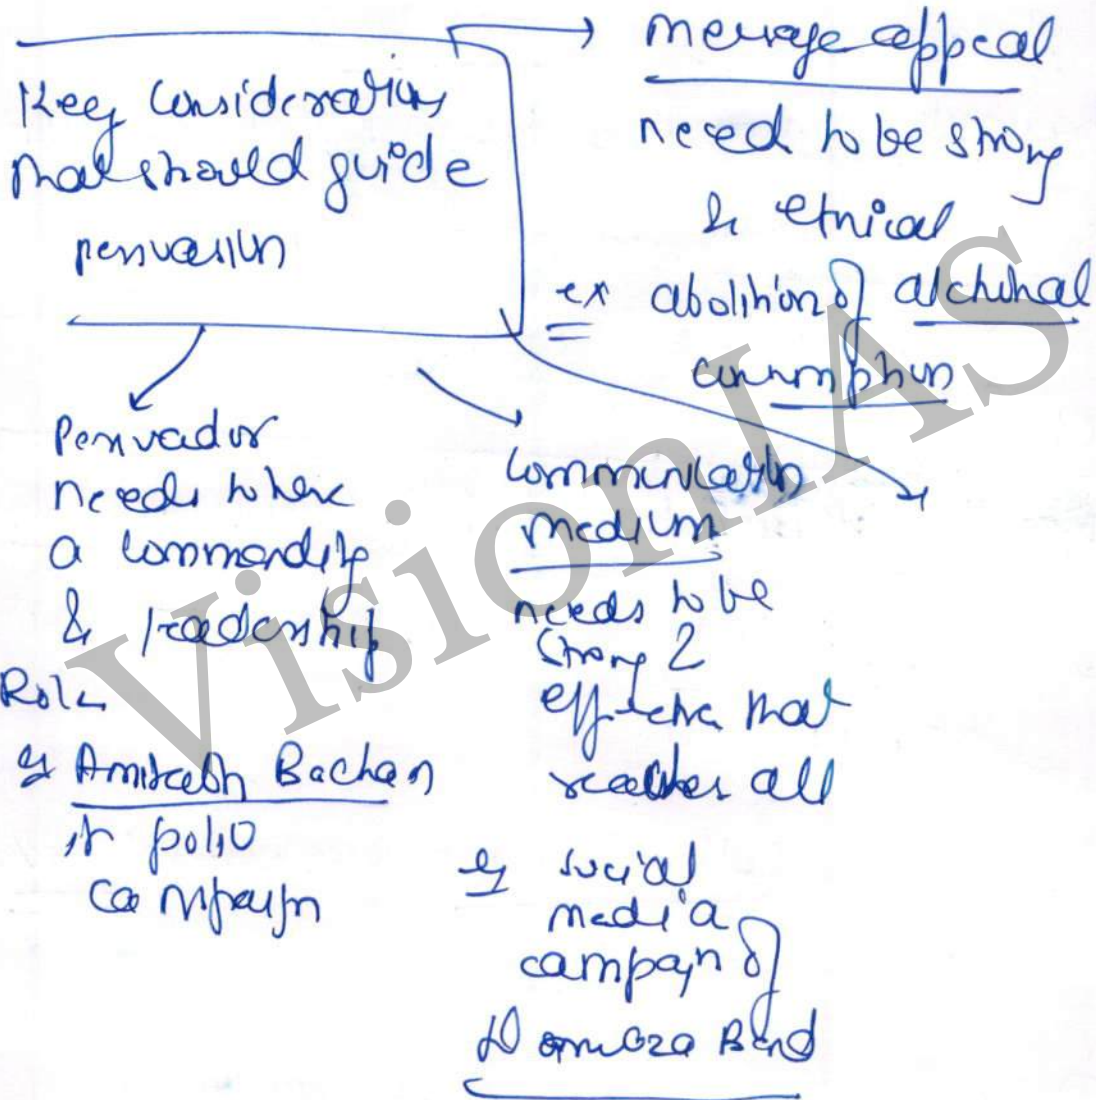 Key Considerations
that should guide
persuasion
message appeal
need to be strong
& ethical
ex abolition of alchohal
consumption
Persuador
needs to have
a commanding
& leadership
Role
eg Amitabh Bachan
in polio
campaign
Communication
medium
needs to be
strong &
effective that
reaches all
eg social
media
campaign of
Darwaza Band
VisionIAS